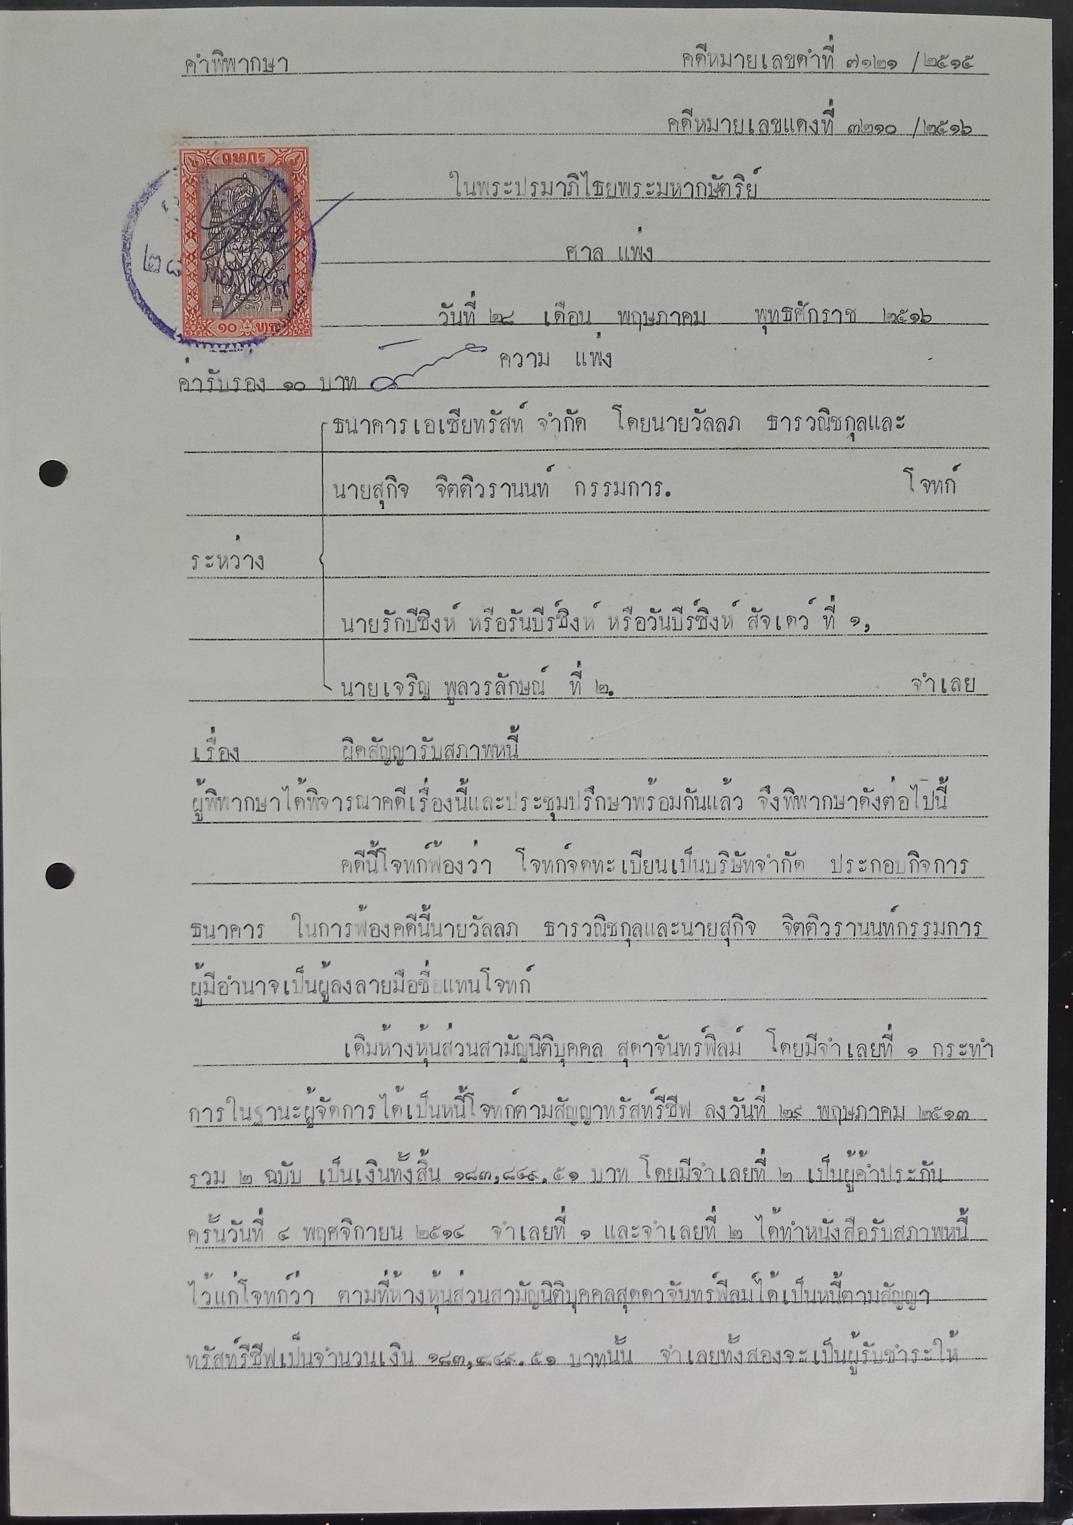 คำพิพากษา คดีหมายเลขดำที่ ๗๑๒๑ /๒๕๑๕
คดีหมายเลขแดงที่ ๗๒๑๐ /๒๕๑๖
อากร
ในพระปรมาภิไธยพระมหากษัตริย์
ศาล แพ่ง
๒๘
๑๐ บาท
วันที่ ๒๘ เดือน พฤษภาคม พุทธศักราช ๒๕๑๖
ความ แพ่ง
ค่ารับรอง ๑๐ บาท
ธนาคารเอเซียทรัสท์ จำกัด โดยนายวัลลภ ธารวณิชกุลและ
นายสุกิจ จิตติวรานนท์ กรรมการ. โจทก์
ระหว่าง
นายรักบีซิงห์ หรือรันบีร์ซิงห์ หรือวันบีร์ซิงห์ สัจเดว์ ที่ ๑,
นายเจริญ พูลวรลักษณ์ ที่ ๒. จำเลย
เรื่อง ผิดสัญญารับสภาพหนี้
ผู้พิพากษาได้พิจารณาคดีเรื่องนี้และประชุมปรึกษาพร้อมกันแล้ว จึงพิพากษาดังต่อไปนี้
คดีนี้โจทก์ฟ้องว่า โจทก์จดทะเบียนเป็นบริษัทจำกัด ประกอบกิจการ
ธนาคาร ในการฟ้องคดีนี้นายวัลลภ ธารวณิชกุลและนายสุกิจ จิตติวรานนท์กรรมการ
ผู้มีอำนาจเป็นผู้ลงลายมือชื่อแทนโจทก์
เดิมห้างหุ้นส่วนสามัญนิติบุคคล สุดาจันทร์ฟิลม์ โดยมีจำเลยที่ ๑ กระทำ
การในฐานะผู้จัดการได้เป็นหนี้โจทก์ตามสัญญาทรัสท์รีซีฟ ลงวันที่ ๒๙ พฤษภาคม ๒๕๑๓
รวม ๒ ฉบับ เป็นเงินทั้งสิ้น ๑๘๓,๘๔๙.๕๑ บาท โดยมีจำเลยที่ ๒ เป็นผู้ค้ำประกัน
ครั้นวันที่ ๔ พฤศจิกายน ๒๕๑๔ จำเลยที่ ๑ และจำเลยที่ ๒ ได้ทำหนังสือรับสภาพหนี้
ไว้แก่โจทก์ว่า ตามที่ห้างหุ้นส่วนสามัญนิติบุคคลสุดาจันทร์ฟิลม์ได้เป็นหนี้ตามสัญญา
ทรัสท์รีซีฟเป็นจำนวนเงิน ๑๘๓,๘๔๙.๕๑ บาทนั้น จำเลยทั้งสองจะเป็นผู้รับชำระให้